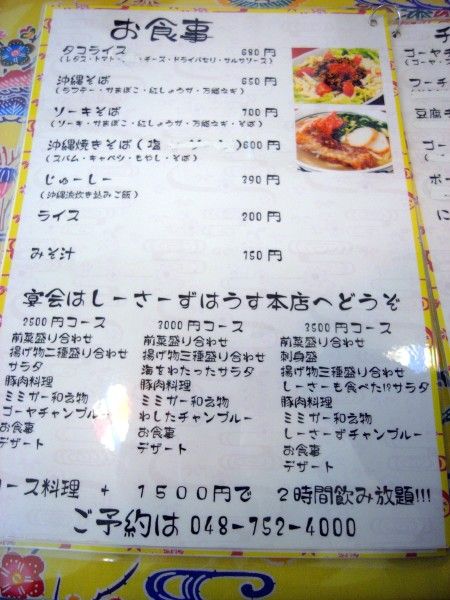 お食事
タコライス 680 円
(レタス・トマト・チーズ・ドライパセリ・サルサソース)
沖縄そば 650 円
(ラフテー・かまぼこ・紅しょうが・万能ネギ)
ソーキそば 700 円
(ソーキ・かまぼこ・紅しょうが・万能ネギ・そば)
沖縄焼きそば(塩 )600 円
(スパム・キャベツ・もやし・そば)
じゅーしー 390 円
(沖縄流炊き込みご飯)
ライス 200 円
みそ汁 150 円
宴会はしーさーずはうす本店へどうぞ
2500円コース
前菜盛り合わせ
揚げ物二種盛り合わせ
サラダ
豚肉料理
ミミガー和え物
ゴーヤチャンプルー
お食事
デザート
3000円コース
前菜盛り合わせ
揚げ物三種盛り合わせ
海をわたったサラダ
豚肉料理
ミミガー和え物
わしたチャンプルー
お食事
デザート
3500円コース
前菜盛り合わせ
刺身盛
揚げ物三種盛り合わせ
しーさーも食べた!?サラダ
豚肉料理
ミミガー和え物
しーさーずチャンプルー
お食事
デザート
コース料理 + 1500円で 2時間飲み放題!!!
ご予約は 048-752-4000
チ
ゴーヤ
(ゴーヤ
フーチ
豆腐チ
ゴー
ポー
に